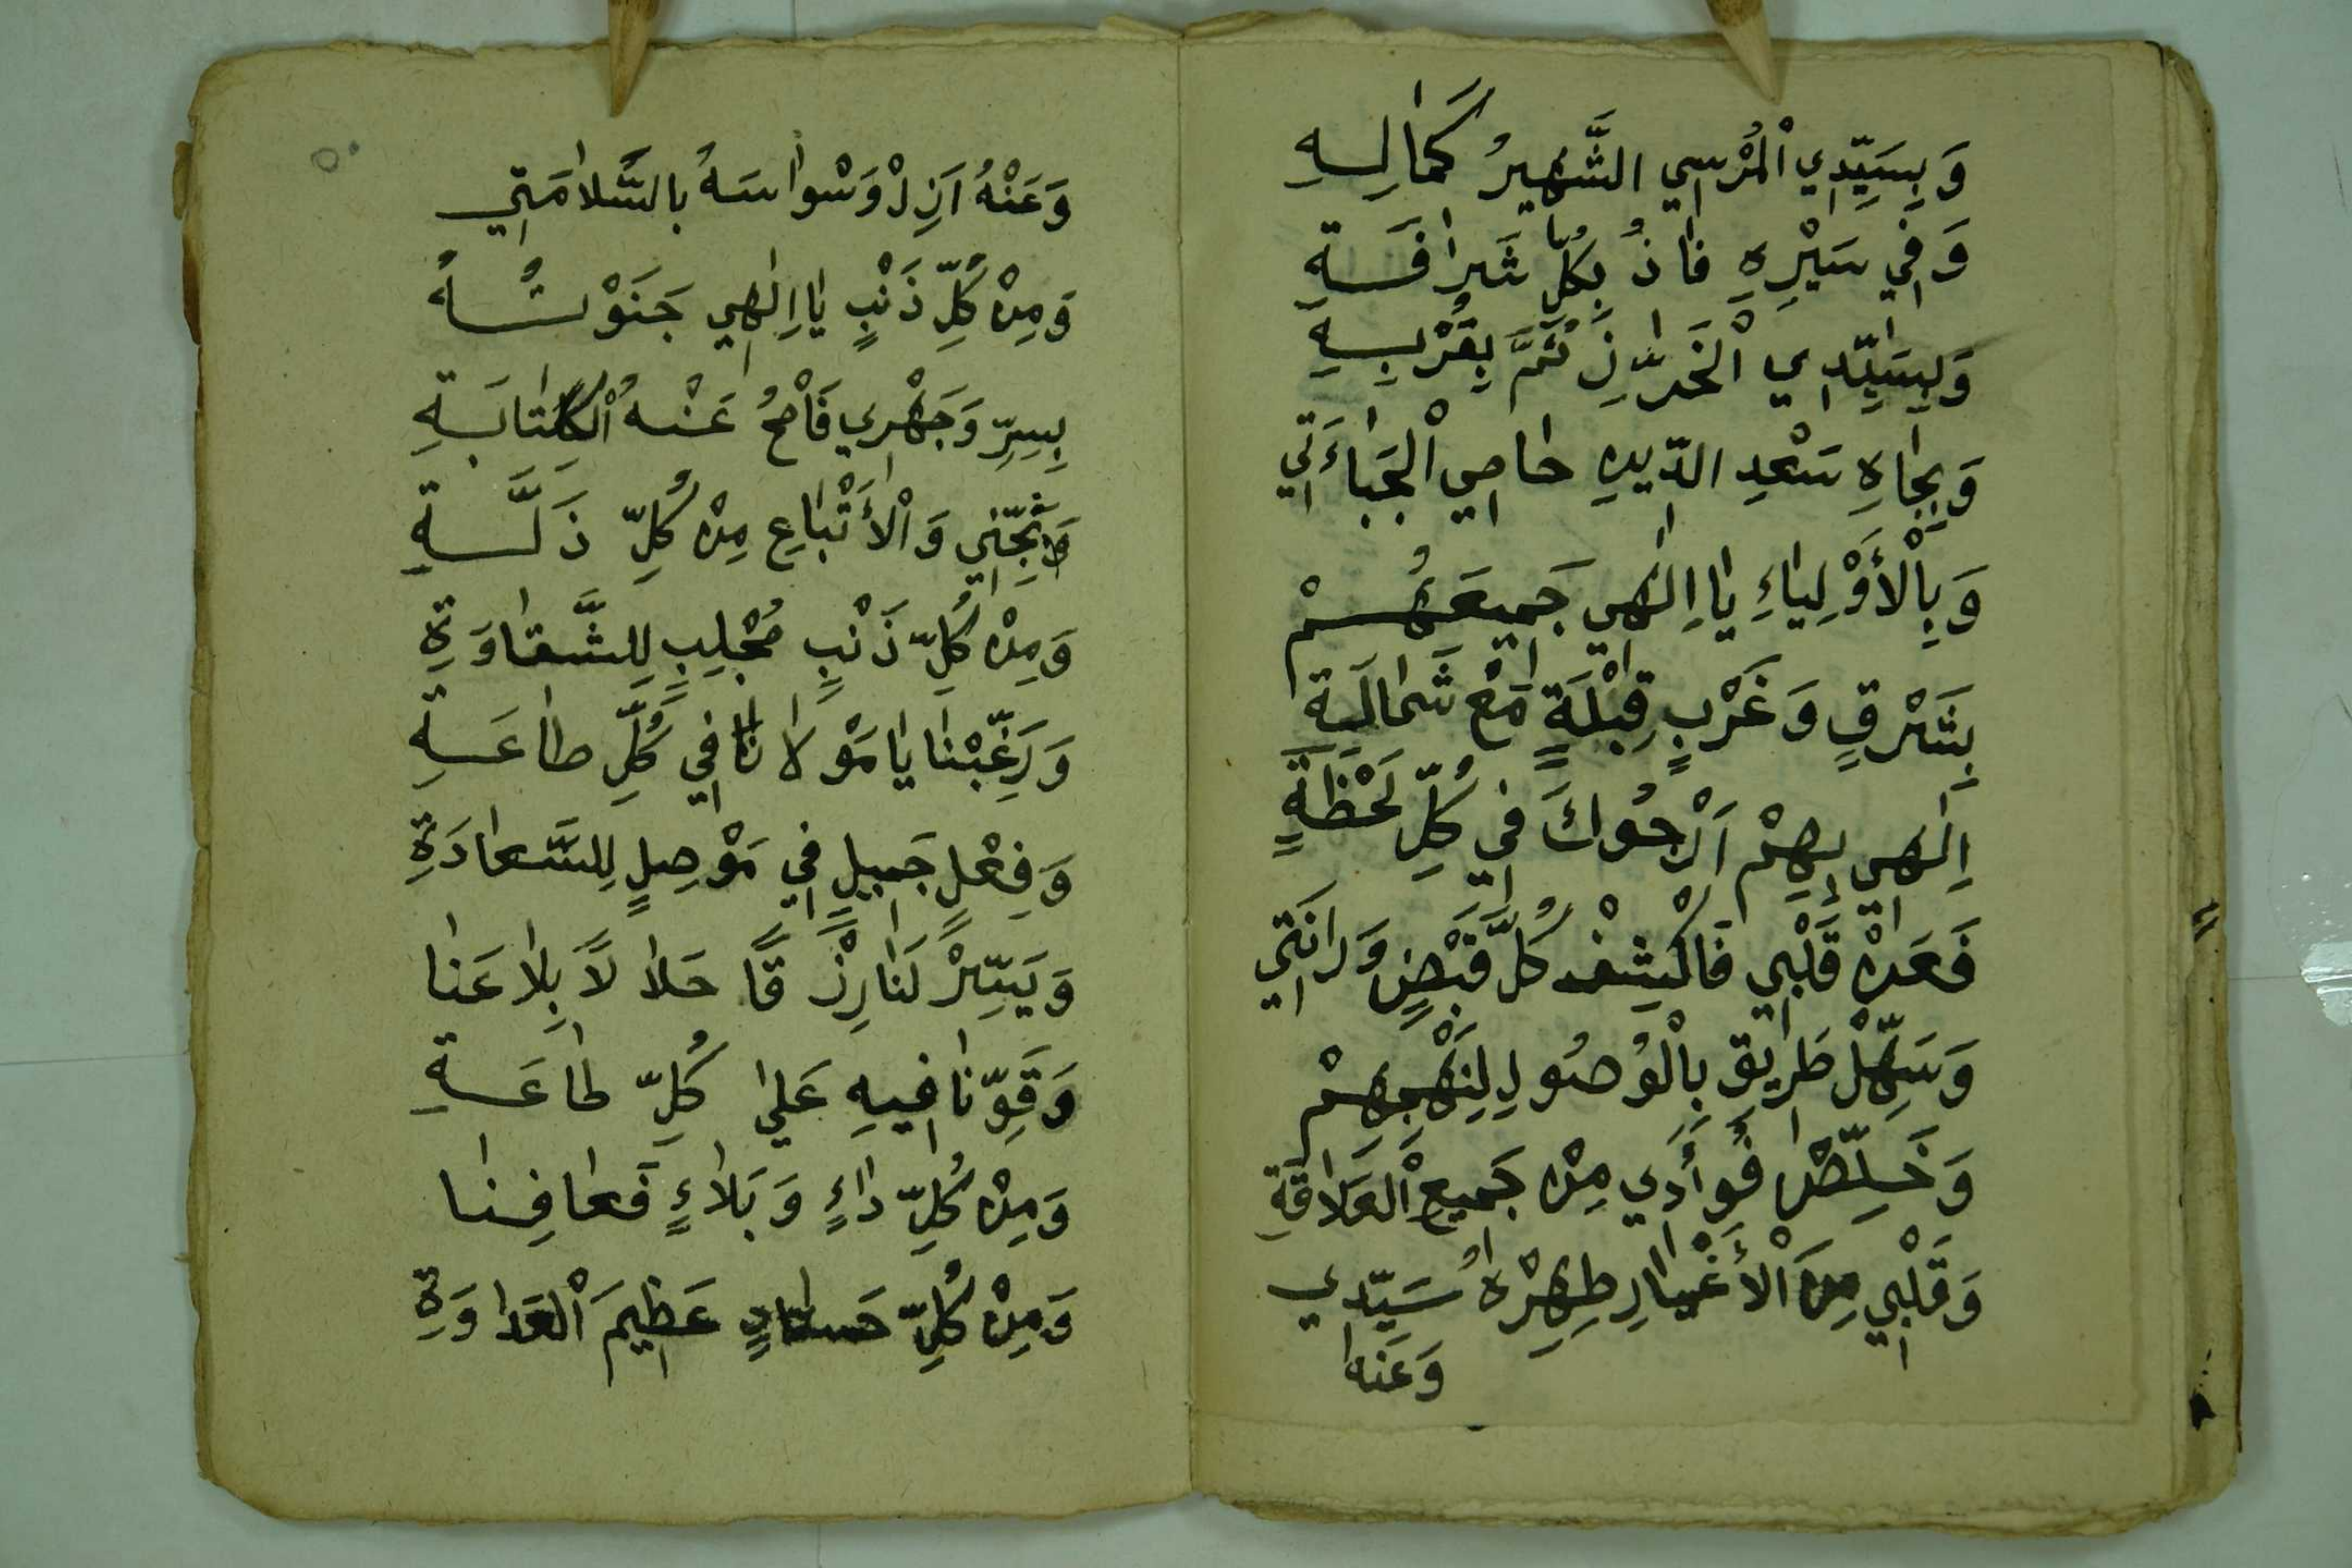 وَبِسَيِّدِي الْمُرْسِي الشَّهِيرُ كَمَالِهِ
وَفِي سَيْرِهِ فَاذُ بِكُلِّ شَرَافَةِ
وَلِسَيِّدِي الْخَرَّازِ ثُمَّ بِقُرْبِهِ
وَبِجَاهِ سَعْدِ الدِّينِ حَامِي الْجَبَاءَتِي
وَبِالْأَوْلِيَاءِ يَا اِلٰهِي جَمِيعَهُمْ
بِشَرْقٍ وَغَرْبٍ قِبْلَةٍ مَعْ شَمَالَةِ
اِلٰهِي بِهِمْ اَرْجُوكَ فِي كُلِّ لَحْظَةٍ
فَعَنْ قَلْبِي فَاكْشِفْ كُلَّ قَبْضٍ وَرَانَتِي
وَسَهِّلْ طَرِيقِ بِالْوُصُولِ لِنَهْجِهِمْ
وَخَلِّصْ فُوأَدِي مِنْ جَمِيعِ الْعَلَاقَةِ
وَقَلْبِي مِنَ الْأَغْيَارِ طَهِّرْهُ سَيِّدِي
وَعَنْه
٥٠
وَعَنْهُ اَزِلْ وَسْوَاسَهُ بِالسَّلَامَتِي
وَمِنْ كُلِّ ذَنْبٍ يَا اِلٰهِي جَنَوْتُهُ
بِسِرِّ وَجَهْرِي فَامْحُ عَنْهُ الْكِتَابَةِ
وَنَجِّنِي وَالْأَتْبَاعِ مِنْ كُلِّ ذَلَّةِ
وَمِنْ كُلِّ ذَنْبٍ مُجْلِبٍ لِلشَّقَاوَةِ
وَرَغِّبْنَا يَا مَوْلَانَا فِي كُلِّ طَاعَةِ
وَفِعْلٍ جَمِيلٍ فِي مَوْصِلٍ لِلسَّعَادَةِ
وَيَسِّرْ لَنَا رِزْقًا حَلَالًا بِلَا عَنَا
وَقَوِّنَا فِيهِ عَلَي كُلِّ طَاعَةِ
وَمِنْ كُلِّ دَاءٍ وَبَلَاءٍ فَعَافِنَا
وَمِنْ كُلِّ حَسَّادٍ عَظِيمَ الْعَدَاوَةِ